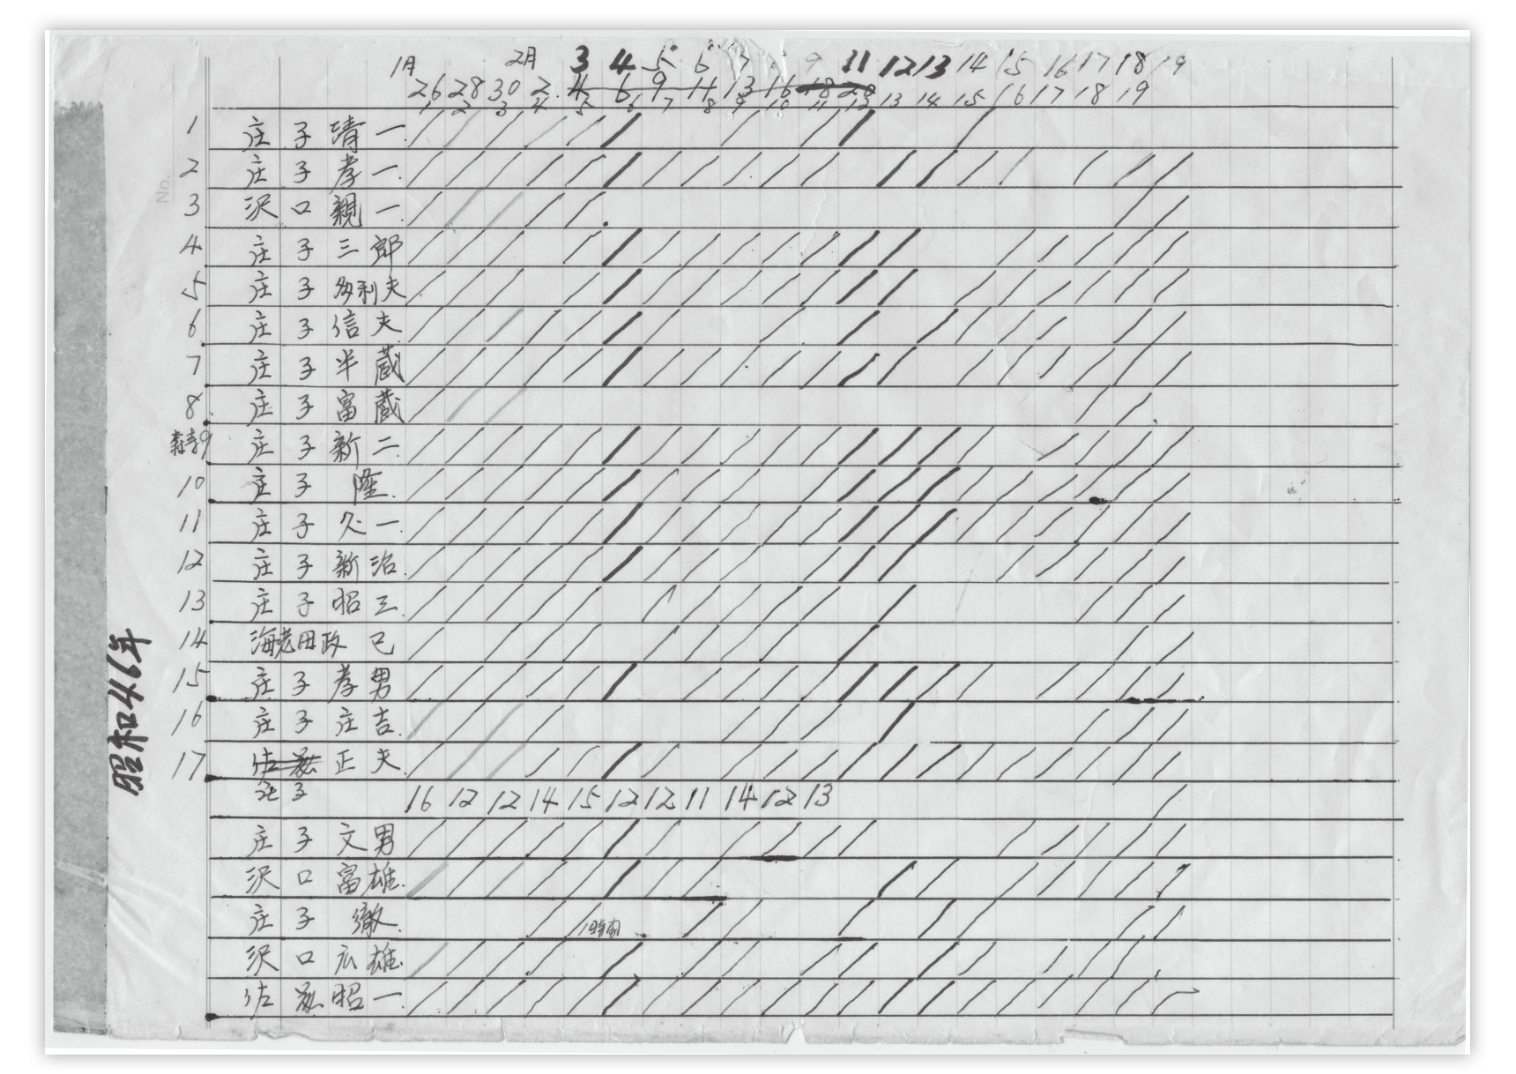 1月 2月 3 4 5 6 7 9 11 12 13 14 15 16 17 18 19
26 28 30 2. 4 6 9 11 13 16 18 20
1 2 3 4 5 6 7 8 9 10 11 12 13 14 15 16 17 18 19
1 庄子清一
2 庄子孝一
3 沢口親一
4 庄子三郎
5 庄子多利夫
6 庄子信夫
7 庄子半蔵
8 庄子富蔵
9 庄子新二
10 庄子隆
11 庄子久一
12 庄子新治
13 庄子昭三
14 海老田政己
15 庄子孝男
16 庄子庄吉
17 佐 正夫
庄子 16 12 12 14 15 12 12 11 14 12 13
庄子文男
沢口富雄
庄子徹 1時間
沢口広雄
佐 昭一
昭和46年
No.